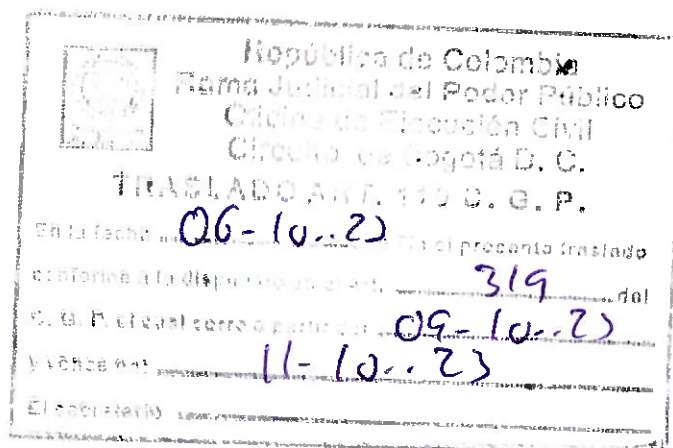 República de Colombia
Rama Judicial del Poder Público
Oficina de Ejecución Civil
Circuito de Bogotá D. C.
TRASLADO ART. 110 C. G. P.
En la fecha 06-10-23 el presente traslado
conforme a lo dispuesto en el 319 del
C. G. P. el cual corre a partir del 09-10-23
y vence en: 11-10-23
El secretario